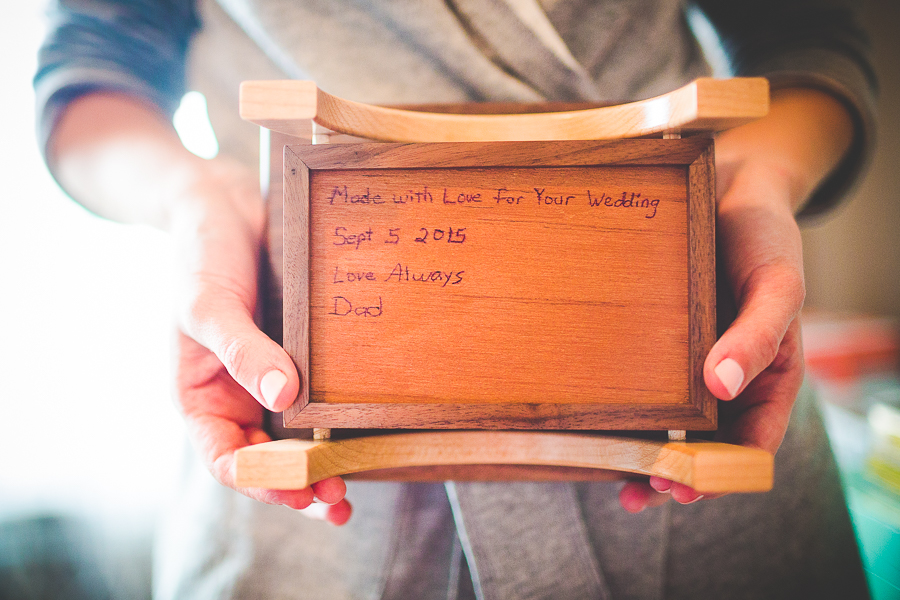 Made with Love for Your Wedding
Sept 5 2015
Love Always
Dad